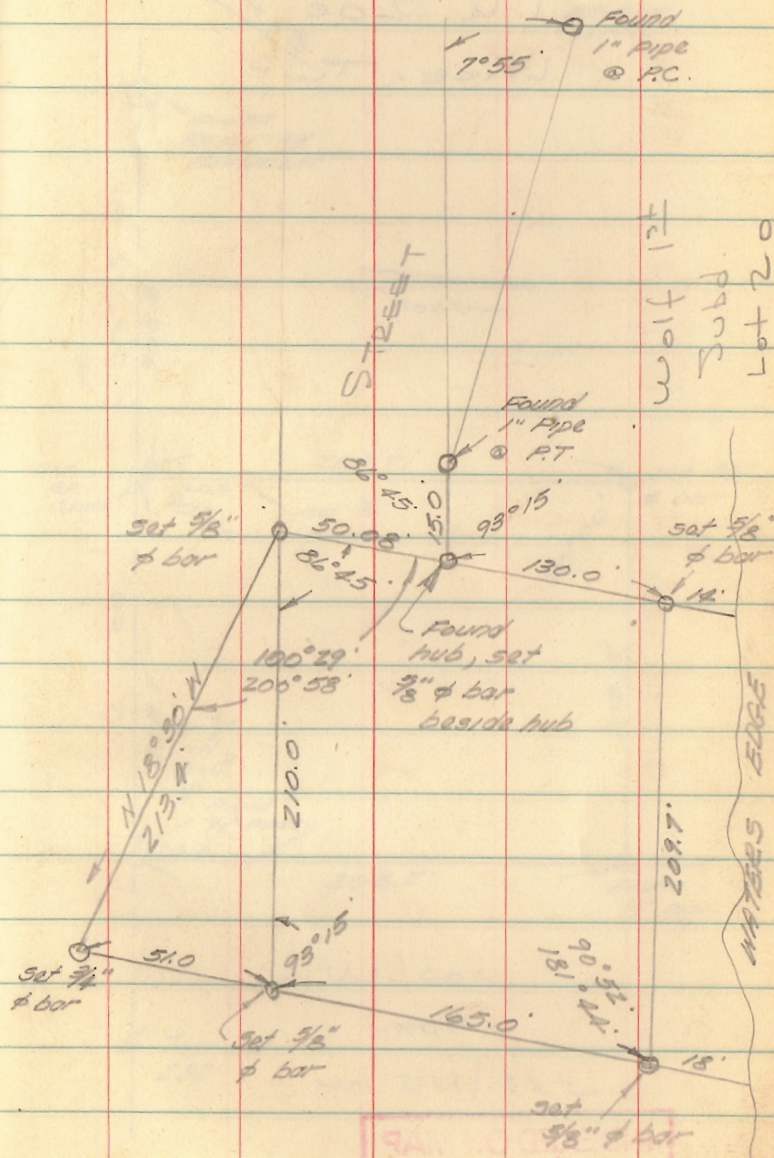 Found
1" Pipe
@ P.C.
7°55'
STREET
Wolf 1st
Subd
Lot 20
Found
1" Pipe
@ P.T.
86°45'
15.0
93°15'
set 5/8"
φ bar
50.08'
86°45'
130.0'
set 5/8"
φ bar
14'
Found
hub, set
5/8" φ bar
beside hub
100°29'
200°58'
N 18°30' W
210.0'
209.7'
WATERS EDGE
93°15'
51.0
set 3/4"
φ bar
set 5/8"
φ bar
165.0'
90°52'
181°44'
18'
set
5/8" φ bar